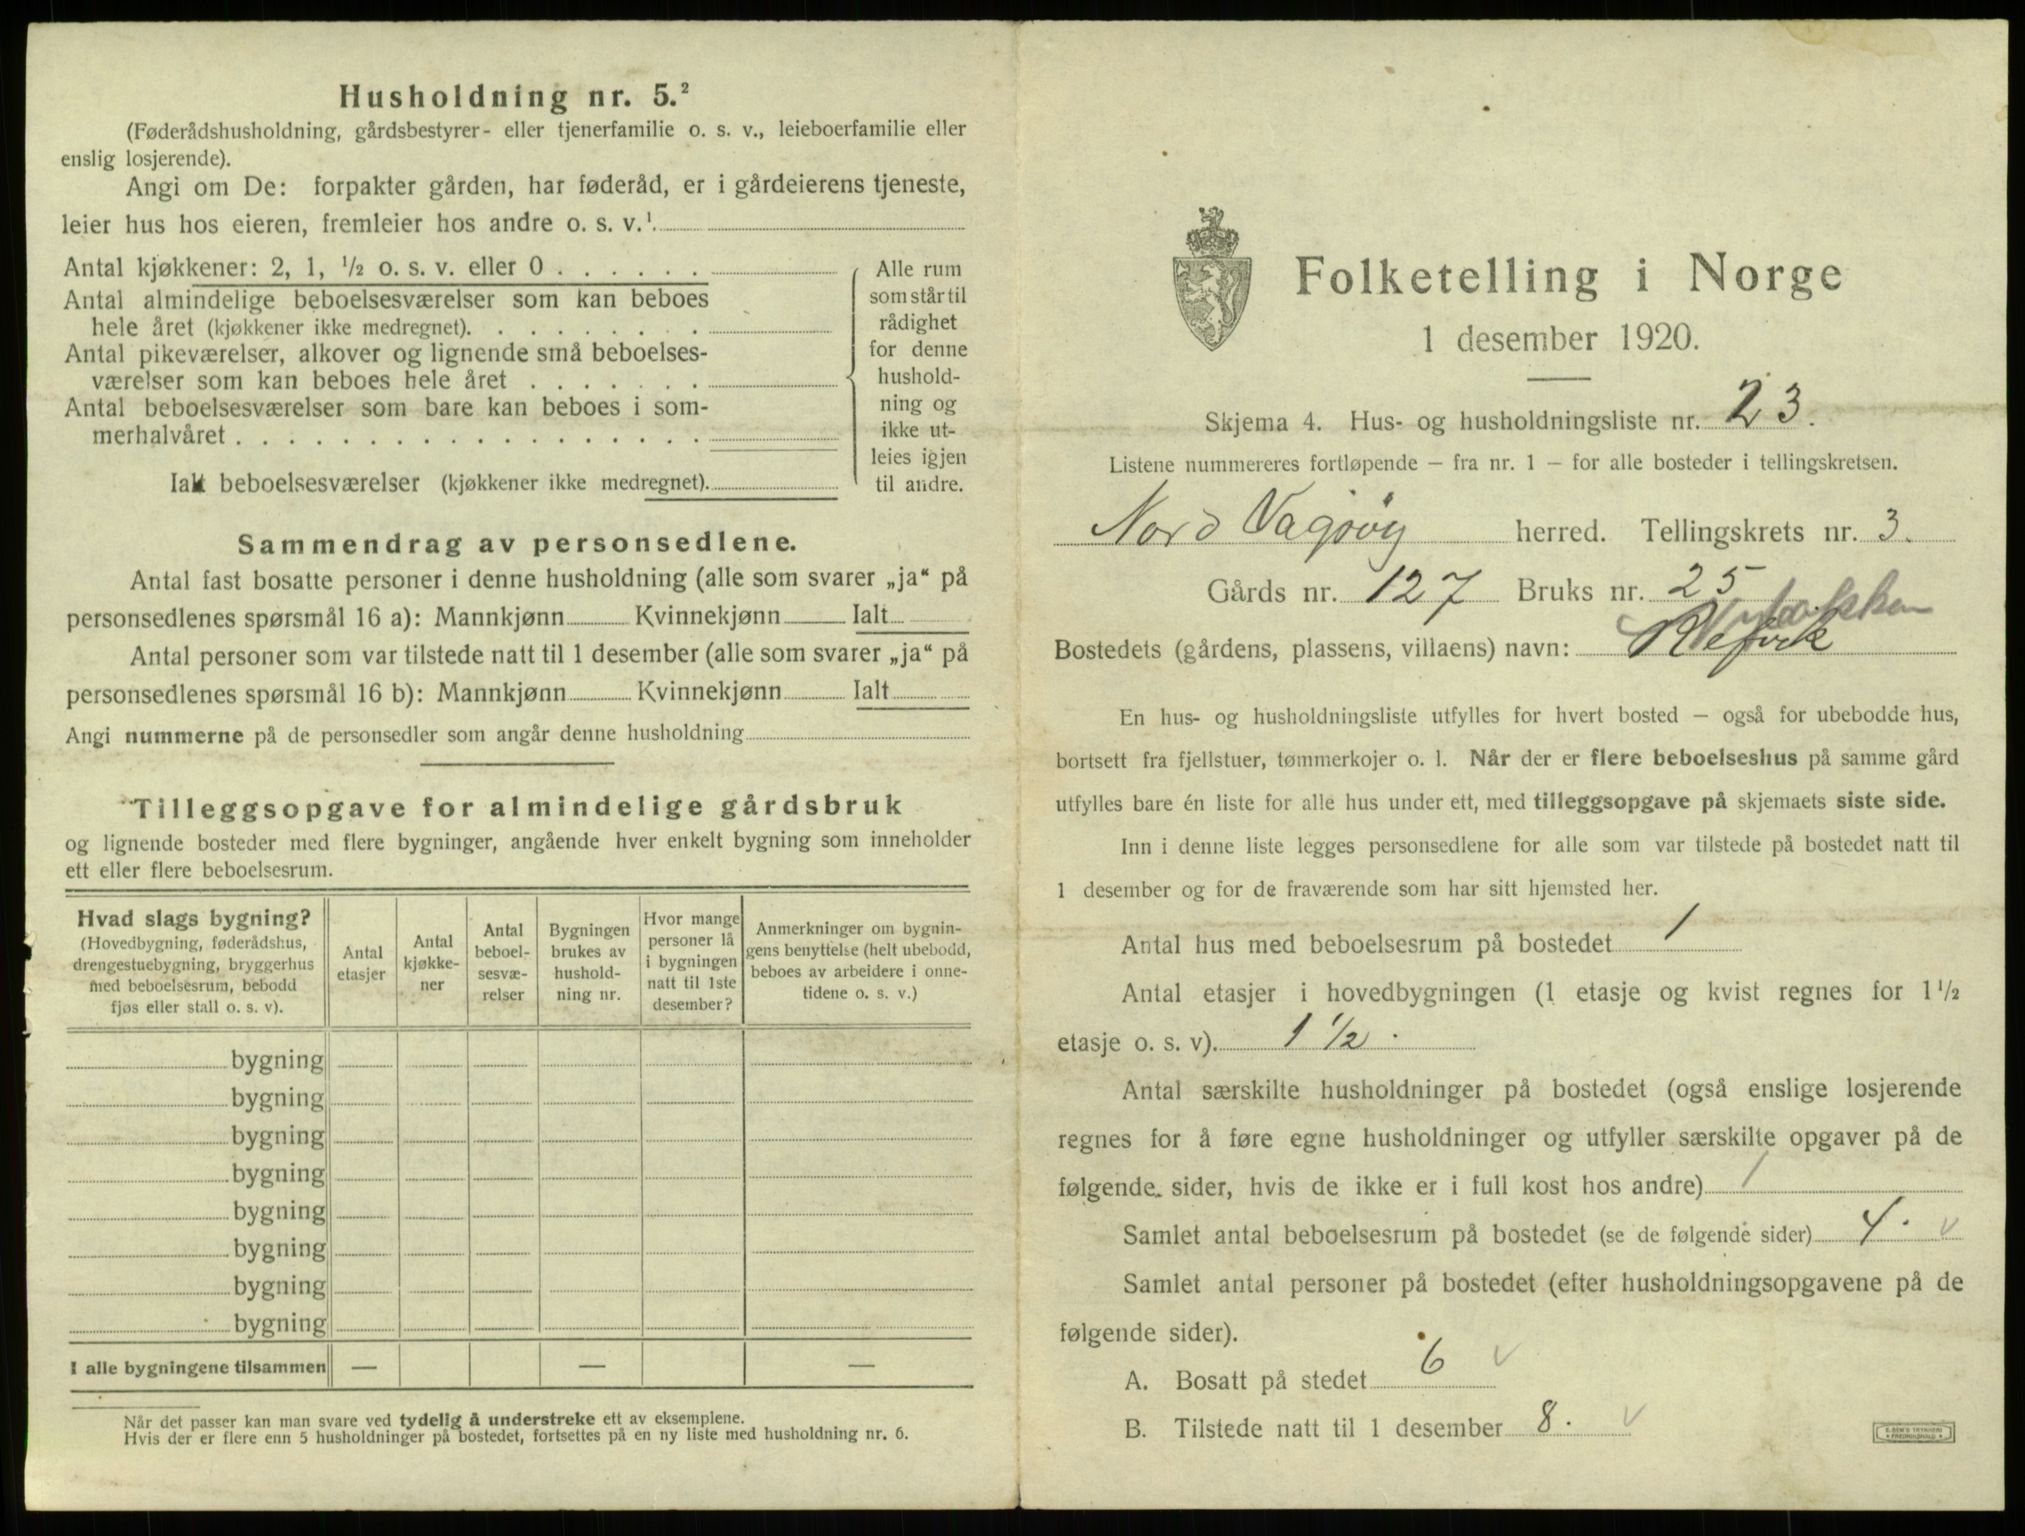 Husholdning nr. 5.²
(Føderådshusholdning, gårdsbestyrer- eller tjenerfamilie o. s. v., leieboerfamilie eller
enslig losjerende).
Angi om De: forpakter gården, har føderåd, er i gårdeierens tjeneste,
leier hus hos eieren, fremleier hos andre o. s. v.¹
Antal kjøkkener: 2, 1, ½ o. s. v. eller 0 . . . . . .
Antal almindelige beboelsesværelser som kan beboes
hele året (kjøkkener ikke medregnet). . . . . . . . .
Antal pikeværelser, alkover og lignende små beboelses-
værelser som kan beboes hele året . . . . . . .
Antal beboelsesværelser som bare kan beboes i som-
merhalvåret . . . . . . . . . . . . . . . . . .
Ialt beboelsesværelser (kjøkkener ikke medregnet).
Alle rum
som står til
rådighet
for denne
hushold-
ning og
ikke ut-
leies igjen
til andre.
Sammendrag av personsedlene.
Antal fast bosatte personer i denne husholdning (alle som svarer „ja“ på
personsedlenes spørsmål 16 a): Mannkjønn Kvinnekjønn Ialt
Antal personer som var tilstede natt til 1 desember (alle som svarer „ja“ på
personsedlenes spørsmål 16 b): Mannkjønn Kvinnekjønn Ialt
Angi nummerne på de personsedler som angår denne husholdning
Tilleggsopgave for almindelige gårdsbruk
og lignende bosteder med flere bygninger, angående hver enkelt bygning som inneholder
ett eller flere beboelsesrum.
Hvad slags bygning?
(Hovedbygning, føderådshus,
drengestuebygning, bryggerhus
med beboelsesrum, bebodd
fjøs eller stall o. s. v).
Antal
etasjer
Antal
kjøkke-
ner
Antal
beboel-
sesvæ-
relser
Bygningen
brukes av
hushold-
ning nr.
Hvor mange
personer lå
i bygningen
natt til 1ste
desember?
Anmerkninger om bygnin-
gens benyttelse (helt ubebodd,
beboes av arbeidere i onne-
tidene o. s. v.)
bygning
bygning
bygning
bygning
bygning
bygning
bygning
bygning
I alle bygningene tilsammen — — —
Når det passer kan man svare ved tydelig å understreke ett av eksemplene.
Hvis der er flere enn 5 husholdninger på bostedet, fortsettes på en ny liste med husholdning nr. 6.
Folketelling i Norge
1 desember 1920.
Skjema 4. Hus- og husholdningsliste nr. 23.
Listene nummereres fortløpende — fra nr. 1 — for alle bosteder i tellingskretsen.
Nord Vagsøy herred. Tellingskrets nr. 3.
Gårds nr. 127 Bruks nr. 25
Bostedets (gårdens, plassens, villaens) navn: Refvik
En hus- og husholdningsliste utfylles for hvert bosted — også for ubebodde hus,
bortsett fra fjellstuer, tømmerkojer o. l. Når der er flere beboelseshus på samme gård
utfylles bare én liste for alle hus under ett, med tilleggsopgave på skjemaets siste side.
Inn i denne liste legges personsedlene for alle som var tilstede på bostedet natt til
1 desember og for de fraværende som har sitt hjemsted her.
Antal hus med beboelsesrum på bostedet 1
Antal etasjer i hovedbygningen (1 etasje og kvist regnes for 1½
etasje o. s. v). 1 ½.
Antal særskilte husholdninger på bostedet (også enslige losjerende
regnes for å føre egne husholdninger og utfyller særskilte opgaver på de
følgende sider, hvis de ikke er i full kost hos andre) 1
Samlet antal beboelsesrum på bostedet (se de følgende sider) 4. v
Samlet antal personer på bostedet (efter husholdningsopgavene på de
følgende sider).
A. Bosatt på stedet 6 v
B. Tilstede natt til 1 desember 8. v